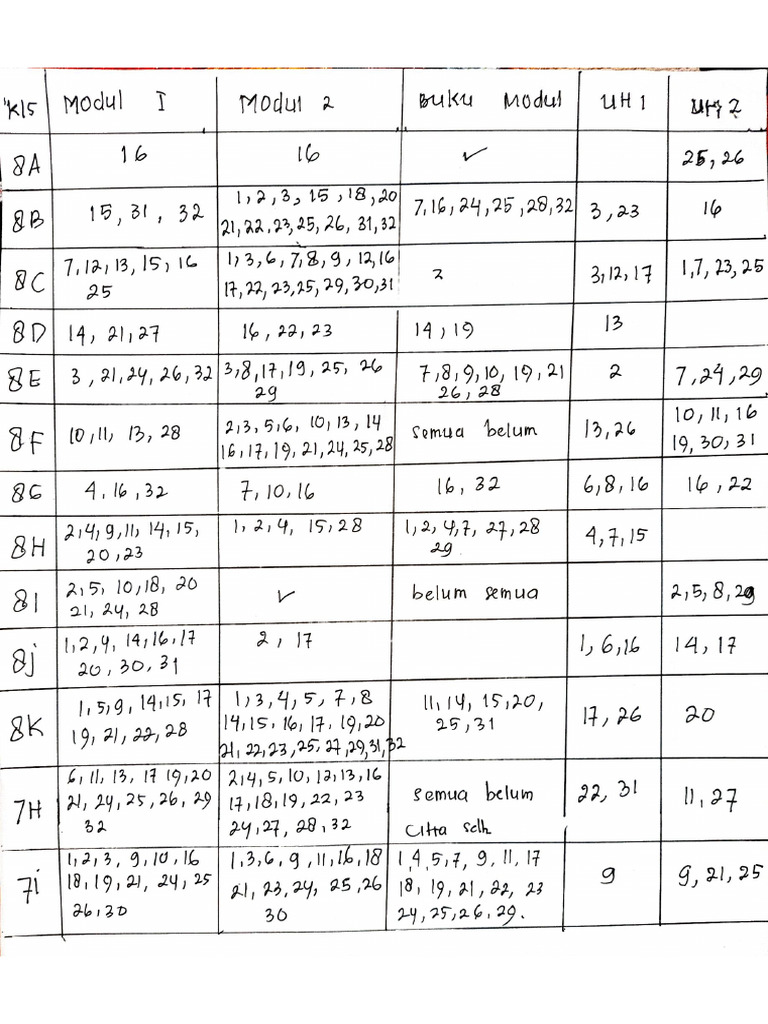 Kls Modul I Modul 2 Buku Modul UH 1 UH 2
8A 16 16 ✓ 25, 26
8B 15, 31, 32 1, 2, 3, 15, 18, 20 7, 16, 24, 25, 28, 32 3, 23 16
21, 22, 23, 25, 26, 31, 32
8C 7, 12, 13, 15, 16 1, 3, 6, 7, 8, 9, 12, 16 2 3, 12, 17 1, 7, 23, 25
25 17, 22, 23, 25, 29, 30, 31
8D 14, 21, 27 16, 22, 23 14, 19 13
8E 3, 21, 24, 26, 32 3, 8, 17, 19, 25, 26 7, 8, 9, 10, 19, 21 2 7, 24, 29
29 26, 28
8F 10, 11, 13, 28 2, 3, 5, 6, 10, 13, 14 semua belum 13, 26 10, 11, 16
16, 17, 19, 21, 24, 25, 28 19, 30, 31
8G 4, 16, 32 7, 10, 16 16, 32 6, 8, 16 16, 22
8H 2, 4, 9, 11, 14, 15, 1, 2, 4, 15, 28 1, 2, 4, 7, 27, 28 4, 7, 15
20, 23 29
8I 2, 5, 10, 18, 20 ✓ belum semua 2, 5, 8, 29
21, 24, 28
8j 1, 2, 4, 14, 16, 17 2, 17 1, 6, 16 14, 17
20, 30, 31
8K 1, 5, 9, 14, 15, 17 1, 3, 4, 5, 7, 8 11, 14, 15, 20, 17, 26 20
19, 21, 22, 28 14, 15, 16, 17, 19, 20 25, 31
21, 22, 23, 25, 27, 29, 31, 32
7H 6, 11, 13, 17 19, 20 2, 4, 5, 10, 12, 13, 16 semua belum 22, 31 11, 27
21, 24, 25, 26, 29 17, 18, 19, 22, 23
32 24, 27, 28, 32
7i 1, 2, 3, 9, 10, 16 1, 3, 6, 9, 11, 16, 18 1, 4, 5, 7, 9, 11, 17 9 9, 21, 25
18, 19, 21, 24, 25 21, 23, 24, 25, 26 18, 19, 21, 22, 23
26, 30 30 24, 25, 26, 29.